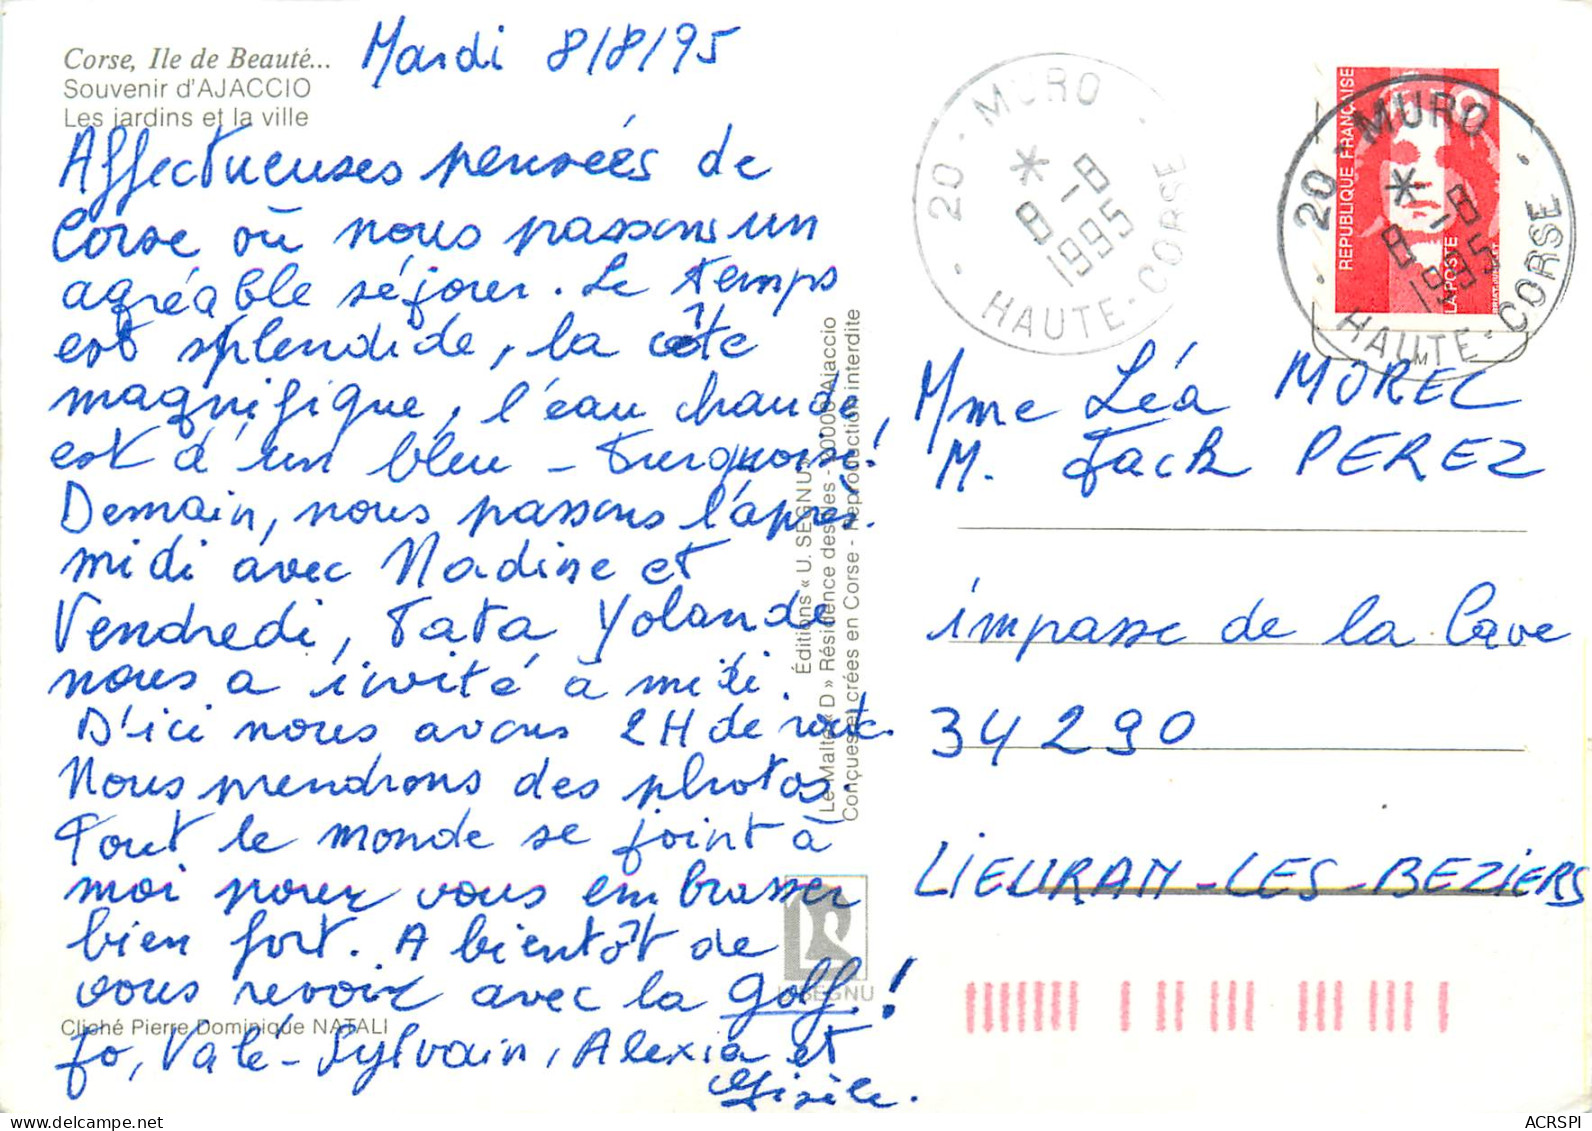 Corse, Ile de Beauté...
Souvenir d'AJACCIO
Les jardins et la ville
Mardi 8/8/95
Affectueuses pensées de
Corse où nous passons un
agréable séjour. Le temps
est splendide, la côte
magnifique, l'eau chaude,
est d'un bleu - turquoise!
Demain, nous passons l'après-
midi avec Nadine et
Vendredi, Tata Yolande
nous a invité à midi.
D'ici nous avons 2H de route.
Nous prendrons des photos.
Tout le monde se joint à
moi pour vous embrasser
bien fort. A bientôt de
vous revoir avec la Golf!
Jo, Valé-Sylvain, Alexia et
Gisèle.
Cliché Pierre Dominique NATALI
Éditions « U. SEGNU »
Le Maltese « D » Résidence des Iles - 20000 Ajaccio
Conçues et créées en Corse - Reproduction interdite
U SEGNU
20 - MURO
* 8 -8
1995
HAUTE-CORSE
REPUBLIQUE FRANÇAISE
LA POSTE
20 - MURO
* 8 -8
1995
HAUTE-CORSE
M
Mme Léa MOREL
M. Jack PEREZ
impasse de la Cave
34290
LIEURAN-LES-BEZIERS
delcampe.net
ACRSPI